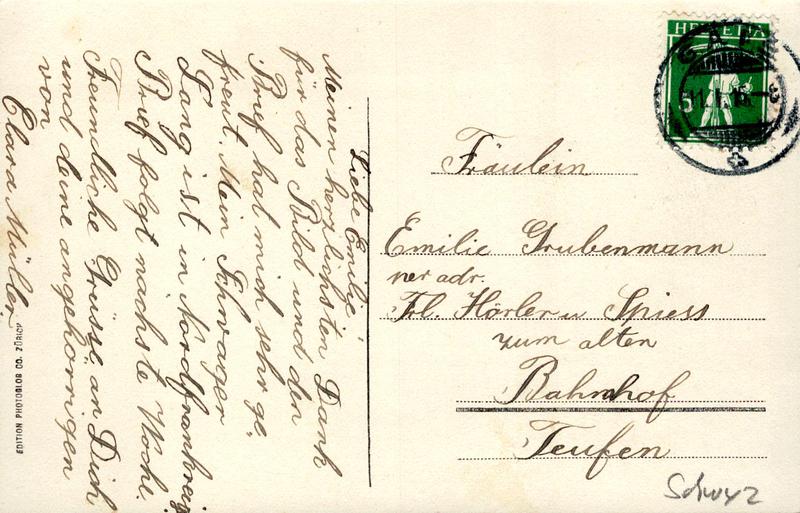 Liebe Emilie!
Meinen herzlichsten Dank
für das Bild und den
Brief hat mich sehr ge-
freut. Mein Schwager
Lang ist in Nordfrankreich
Brief folgt nächste Woche.
Freundliche Grüsse an Dich
und deine angehörrigen
von
Clara Müller
EDITION PHOTOGLOB CO. ZÜRICH
HELVETIA
5
Fräulein
Emilie Grubenmann
per adr.
Frl. Hörler u Spiess
zum alten
Bahnhof
Teufen
Schwyz